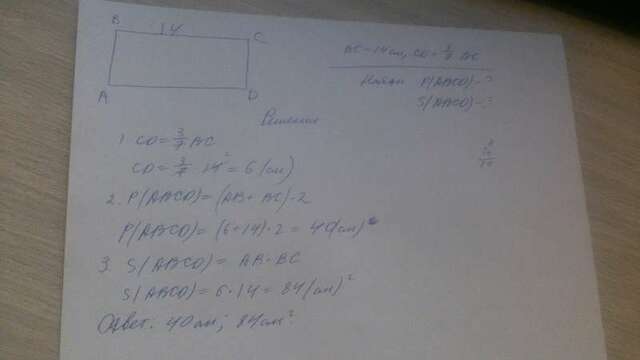 B
14
C
A
D
BC = 14 см, CD = 3/7 BC
Найти P(ABCD) - ?
S(ABCD) - ?
Решение
1. CD = 3/7 BC
CD = 3/7 · 14 ² = 6 (см)
2. P(ABCD) = (AB + BC) · 2
P(ABCD) = (6 + 14) · 2 = 40 (см)
3. S(ABCD) = AB · BC
S(ABCD) = 6 · 14 = 84 (см)²
Ответ: 40 см; 84 см²